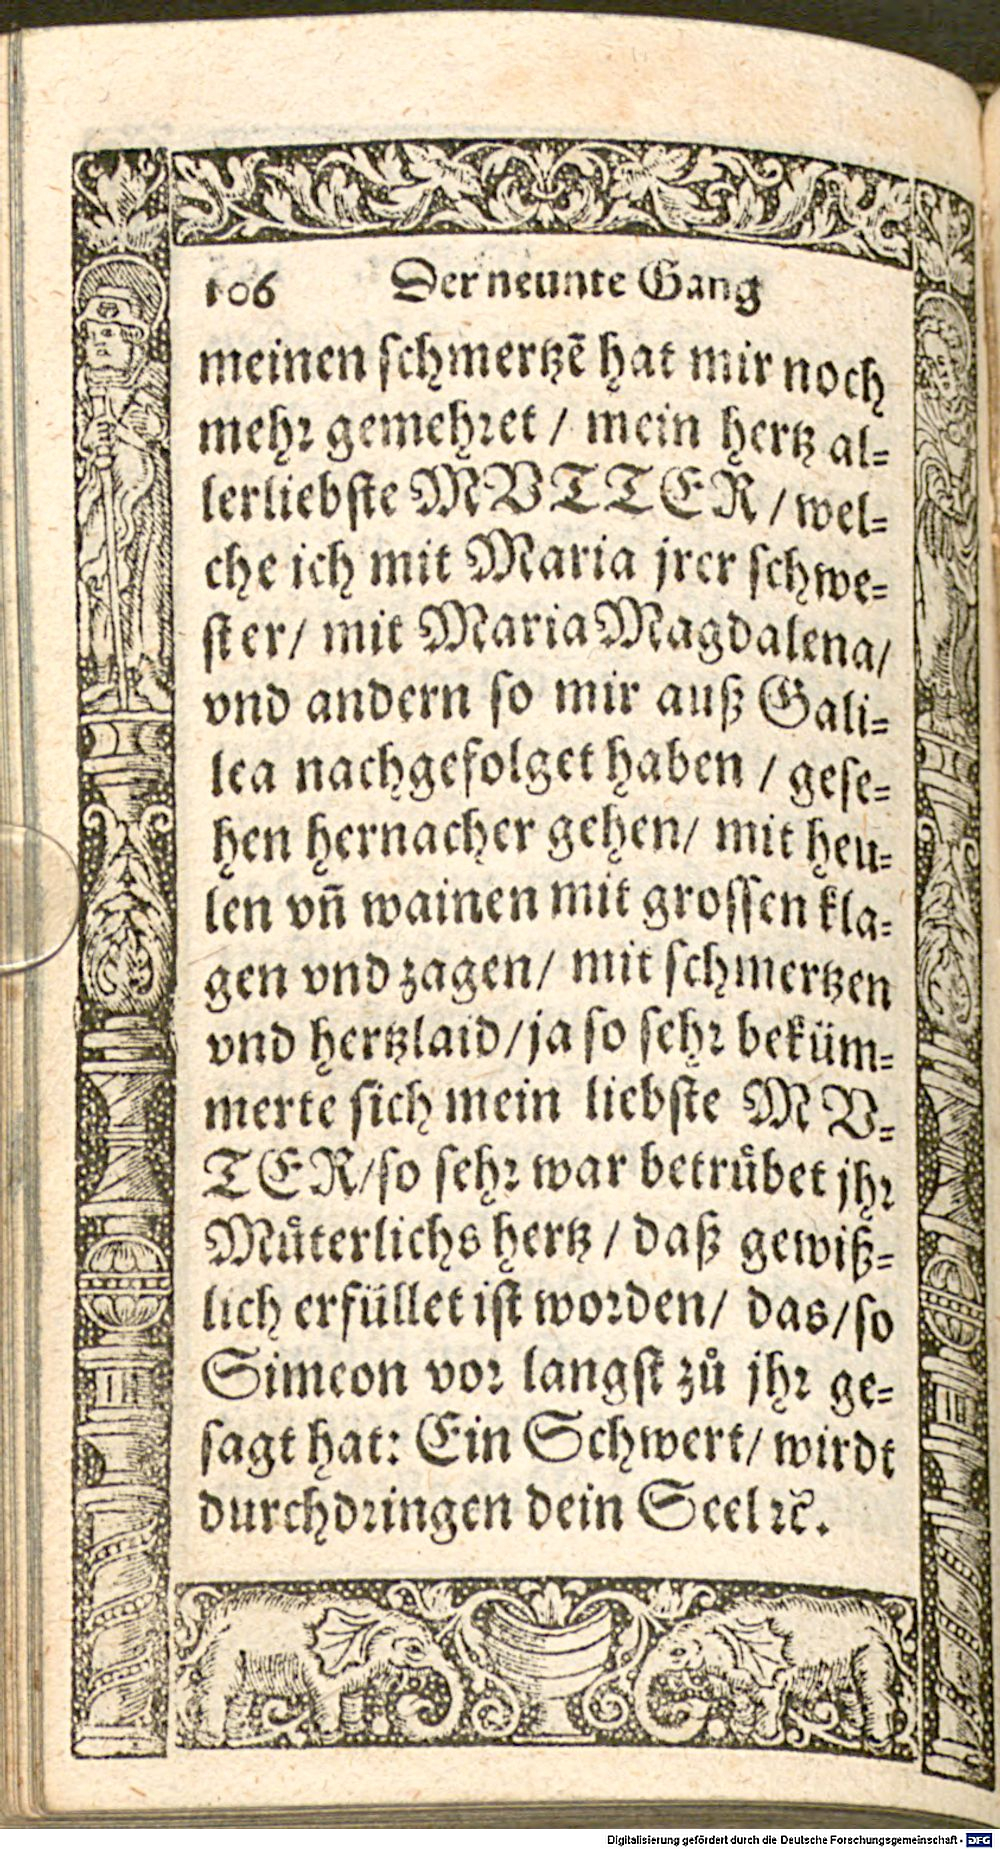 106 Der neunte Gang
meinen schmertzẽ hat mir noch
mehr gemehret / mein hertz al⸗
lerliebste MVTTER / wel⸗
che ich mit Maria jrer schwe⸗
ster / mit Maria Magdalena /
vnd andern so mir auß Gali⸗
lea nachgefolget haben / gese⸗
hen hernacher gehen / mit heu⸗
len vñ wainen mit grossen kla⸗
gen vnd zagen / mit schmertzen
vnd hertzlaid / ja so sehr beküm⸗
merte sich mein liebste MV⸗
TER / so sehr war betruͤbet jhr
Muͤterlichs hertz / daß gewiß⸗
lich erfüllet ist worden / das / so
Simeon vor langst zuͦ jhr ge⸗
sagt hat: Ein Schwert / wirdt
durchdringen dein Seel ꝛc̃.
Digitalisierung gefördert durch die Deutsche Forschungsgemeinschaft - DFG